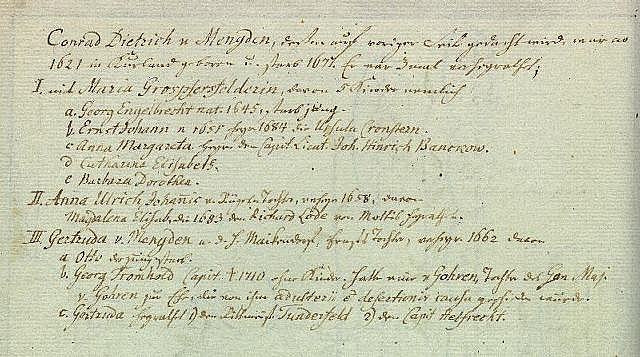 Conrad Dietrich v Mengden, dessen auf voriger Seite gedacht wird, war ao
1621 in Kurland geboren u. starb 1677. Er war 3mal verheyrathet;
I, mit Maria Grospfersfelderin, davon 5 Kinder nemlich
a. Georg Engelbrecht nat. 1645, starb jung.
b. Ernst Johann n 1651 1684 die Ursula Cronstern.
c Anna Margareta den Capit Lieut. Joh. Hinrich Banckow.
d Catharina Elisabeth.
e Barbara Dorothea.
II. Anna Ulrich Johanis v. Tochter, 1658, davon
Magdalena Elisab, die 1683 den Richard Lode von
III. Gertruda v. Mengden a. d. H. Tochter, 1662 davon
a. Otto der jung starb.
b. Georg Fromhold Capit. † 1710 ohne Kinder. Hatte eine v Gohren, Tochter des Gen. Maj.
v. Gohren zur Ehe, die von ihm adulterii & desertionis causa geschieden wurde.
c. Gertruda 1) den Rittmeist. Tunderfeldt 2) den Capit Helfrecht.